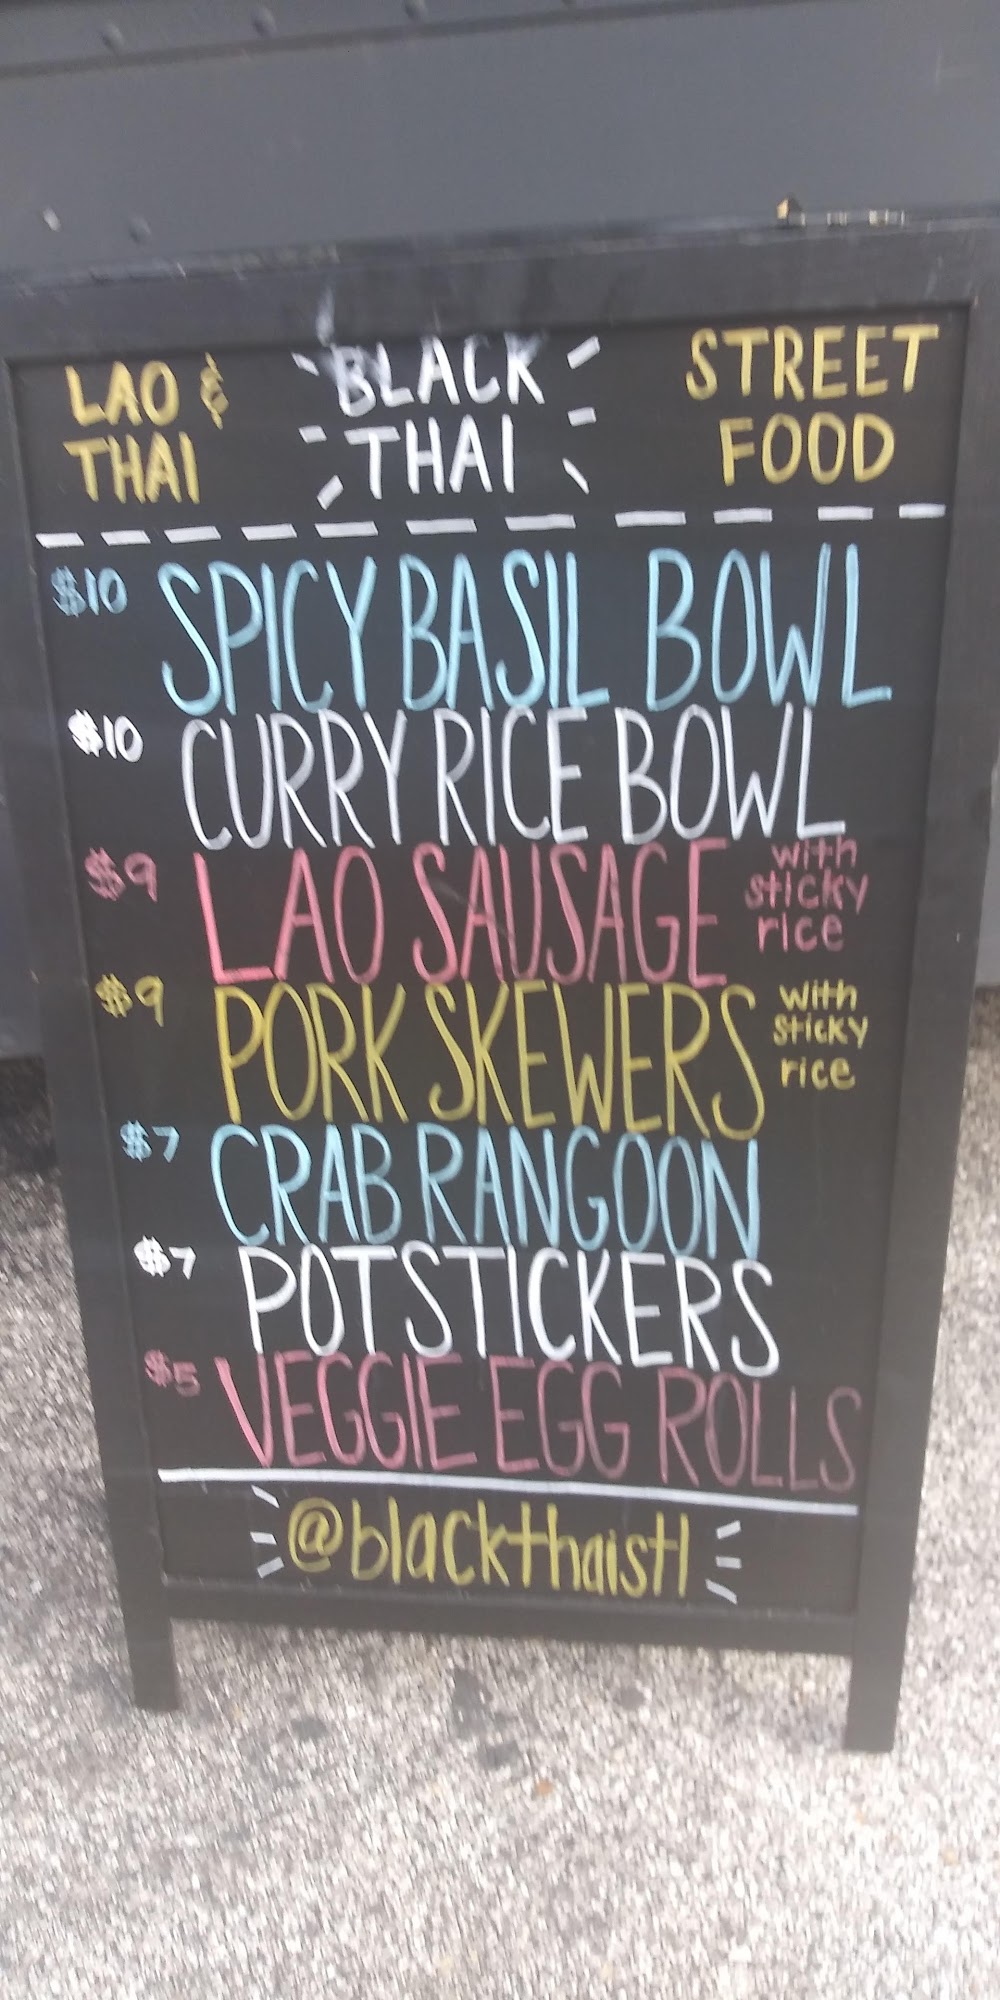 LAO &
THAI
BLACK
THAI
STREET
FOOD
$10 SPICY BASIL BOWL
$10 CURRY RICE BOWL
$9 LAO SAUSAGE with
sticky
rice
$9 PORK SKEWERS with
sticky
rice
$7 CRAB RANGOON
$7 POTSTICKERS
$5 VEGGIE EGG ROLLS
@blackthaistl